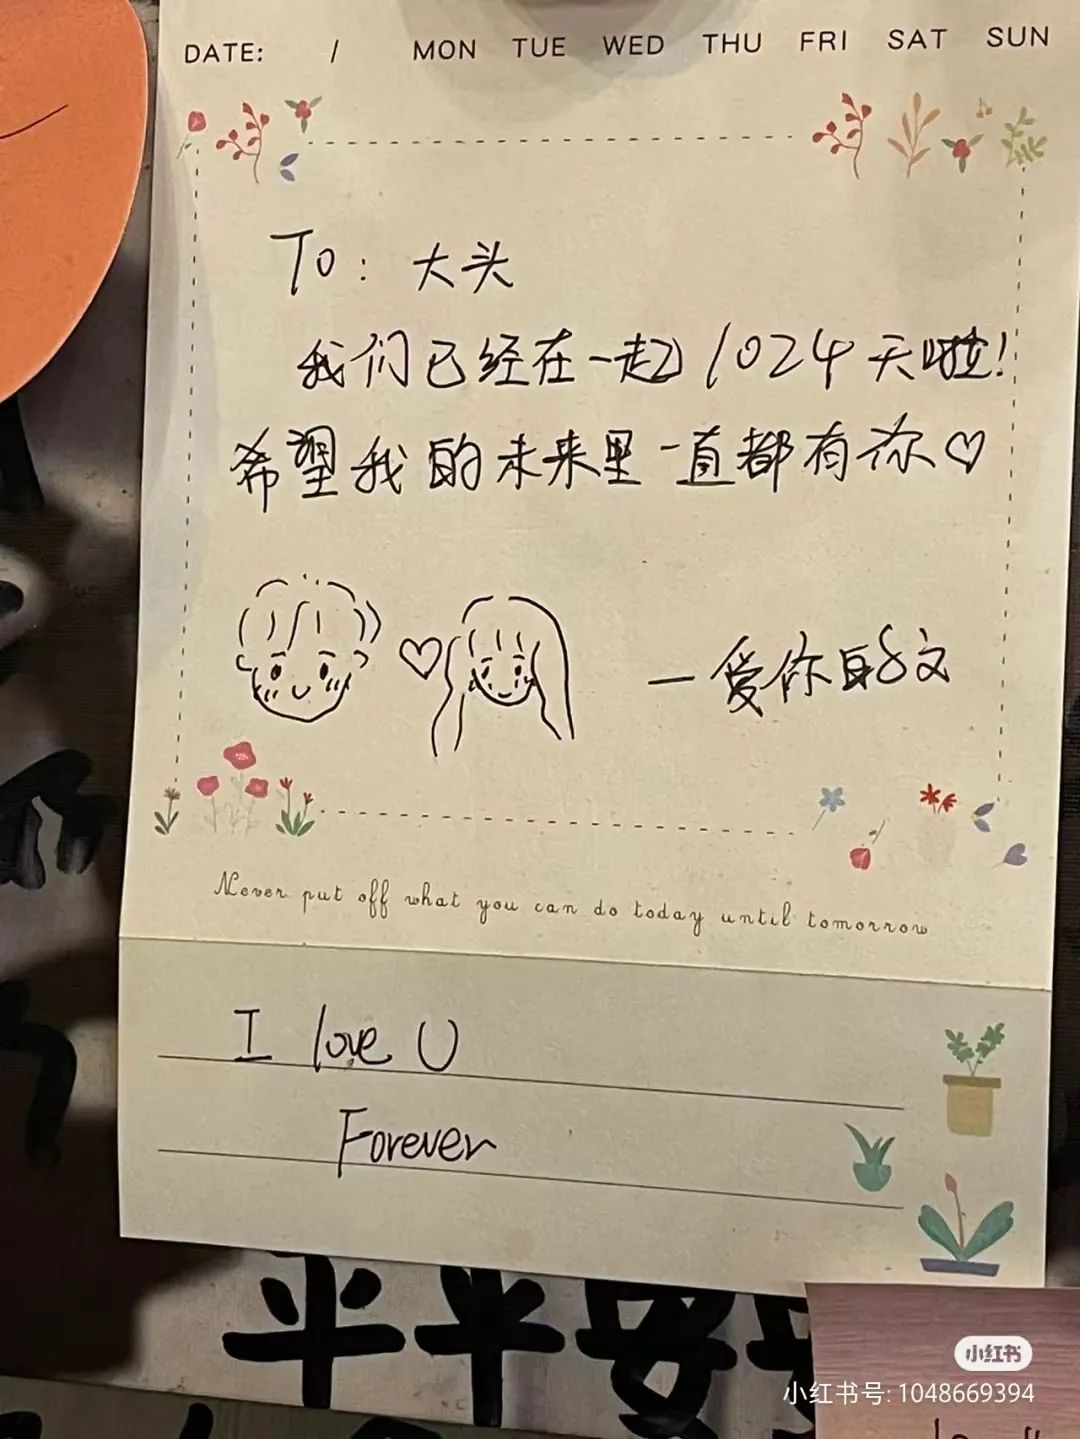 DATE: / MON TUE WED THU FRI SAT SUN
To: 大头
我们已经在一起1024天啦!
希望我的未来里一直都有你♡
—爱你的文
Never put off what you can do today until tomorrow
I love U
Forever
平平安安
小红书
小红书号: 1048669394